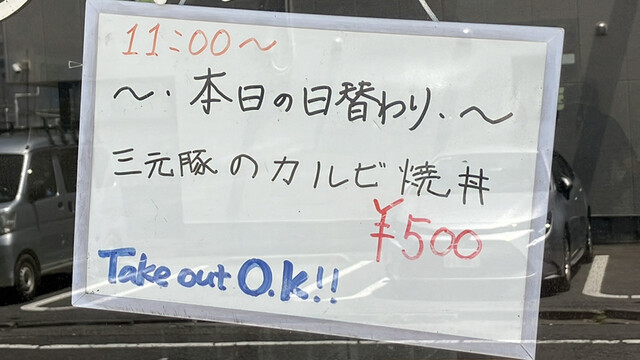 11:00〜
〜・本日の日替わり・〜
三元豚のカルビ焼丼
¥500
Take out O.K!!